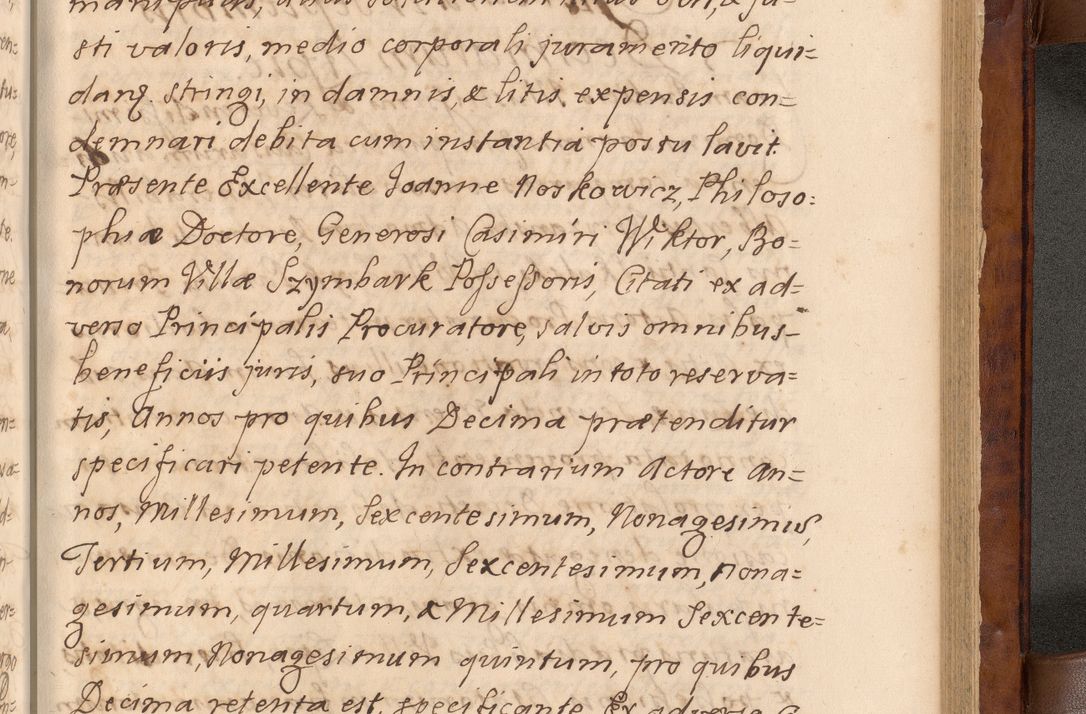 sti valoris, medio corporali juramento liqui=
danq. stringi, in damnis, & litis expensis con=
demnari debita cum instantia postulavit.
Præsente Excellente Joanne Noskowicz, Philoso=
phiæ Doctore, Generosi Casimiri Wiktor, Bo=
norum Villæ Szymbark Possessoris, Citati ex ad=
verso Principalis Procuratore, salvis omnibus
beneficiis juris, suo Principali in toto reserva=
tis, Annos pro quibus Decima prætenditur
specificari petente. In contrarium Actore An=
nos, Millesimum, Sexcentesimum, Nonagesimum,
Tertium, Millesimum, Sexcentesimum, Nona=
gesimum, quartum, & Millesimum Sexcente=
simum, Nonagesimum quintum, pro quibus
Decima retenta est, specificante. Ex adverso